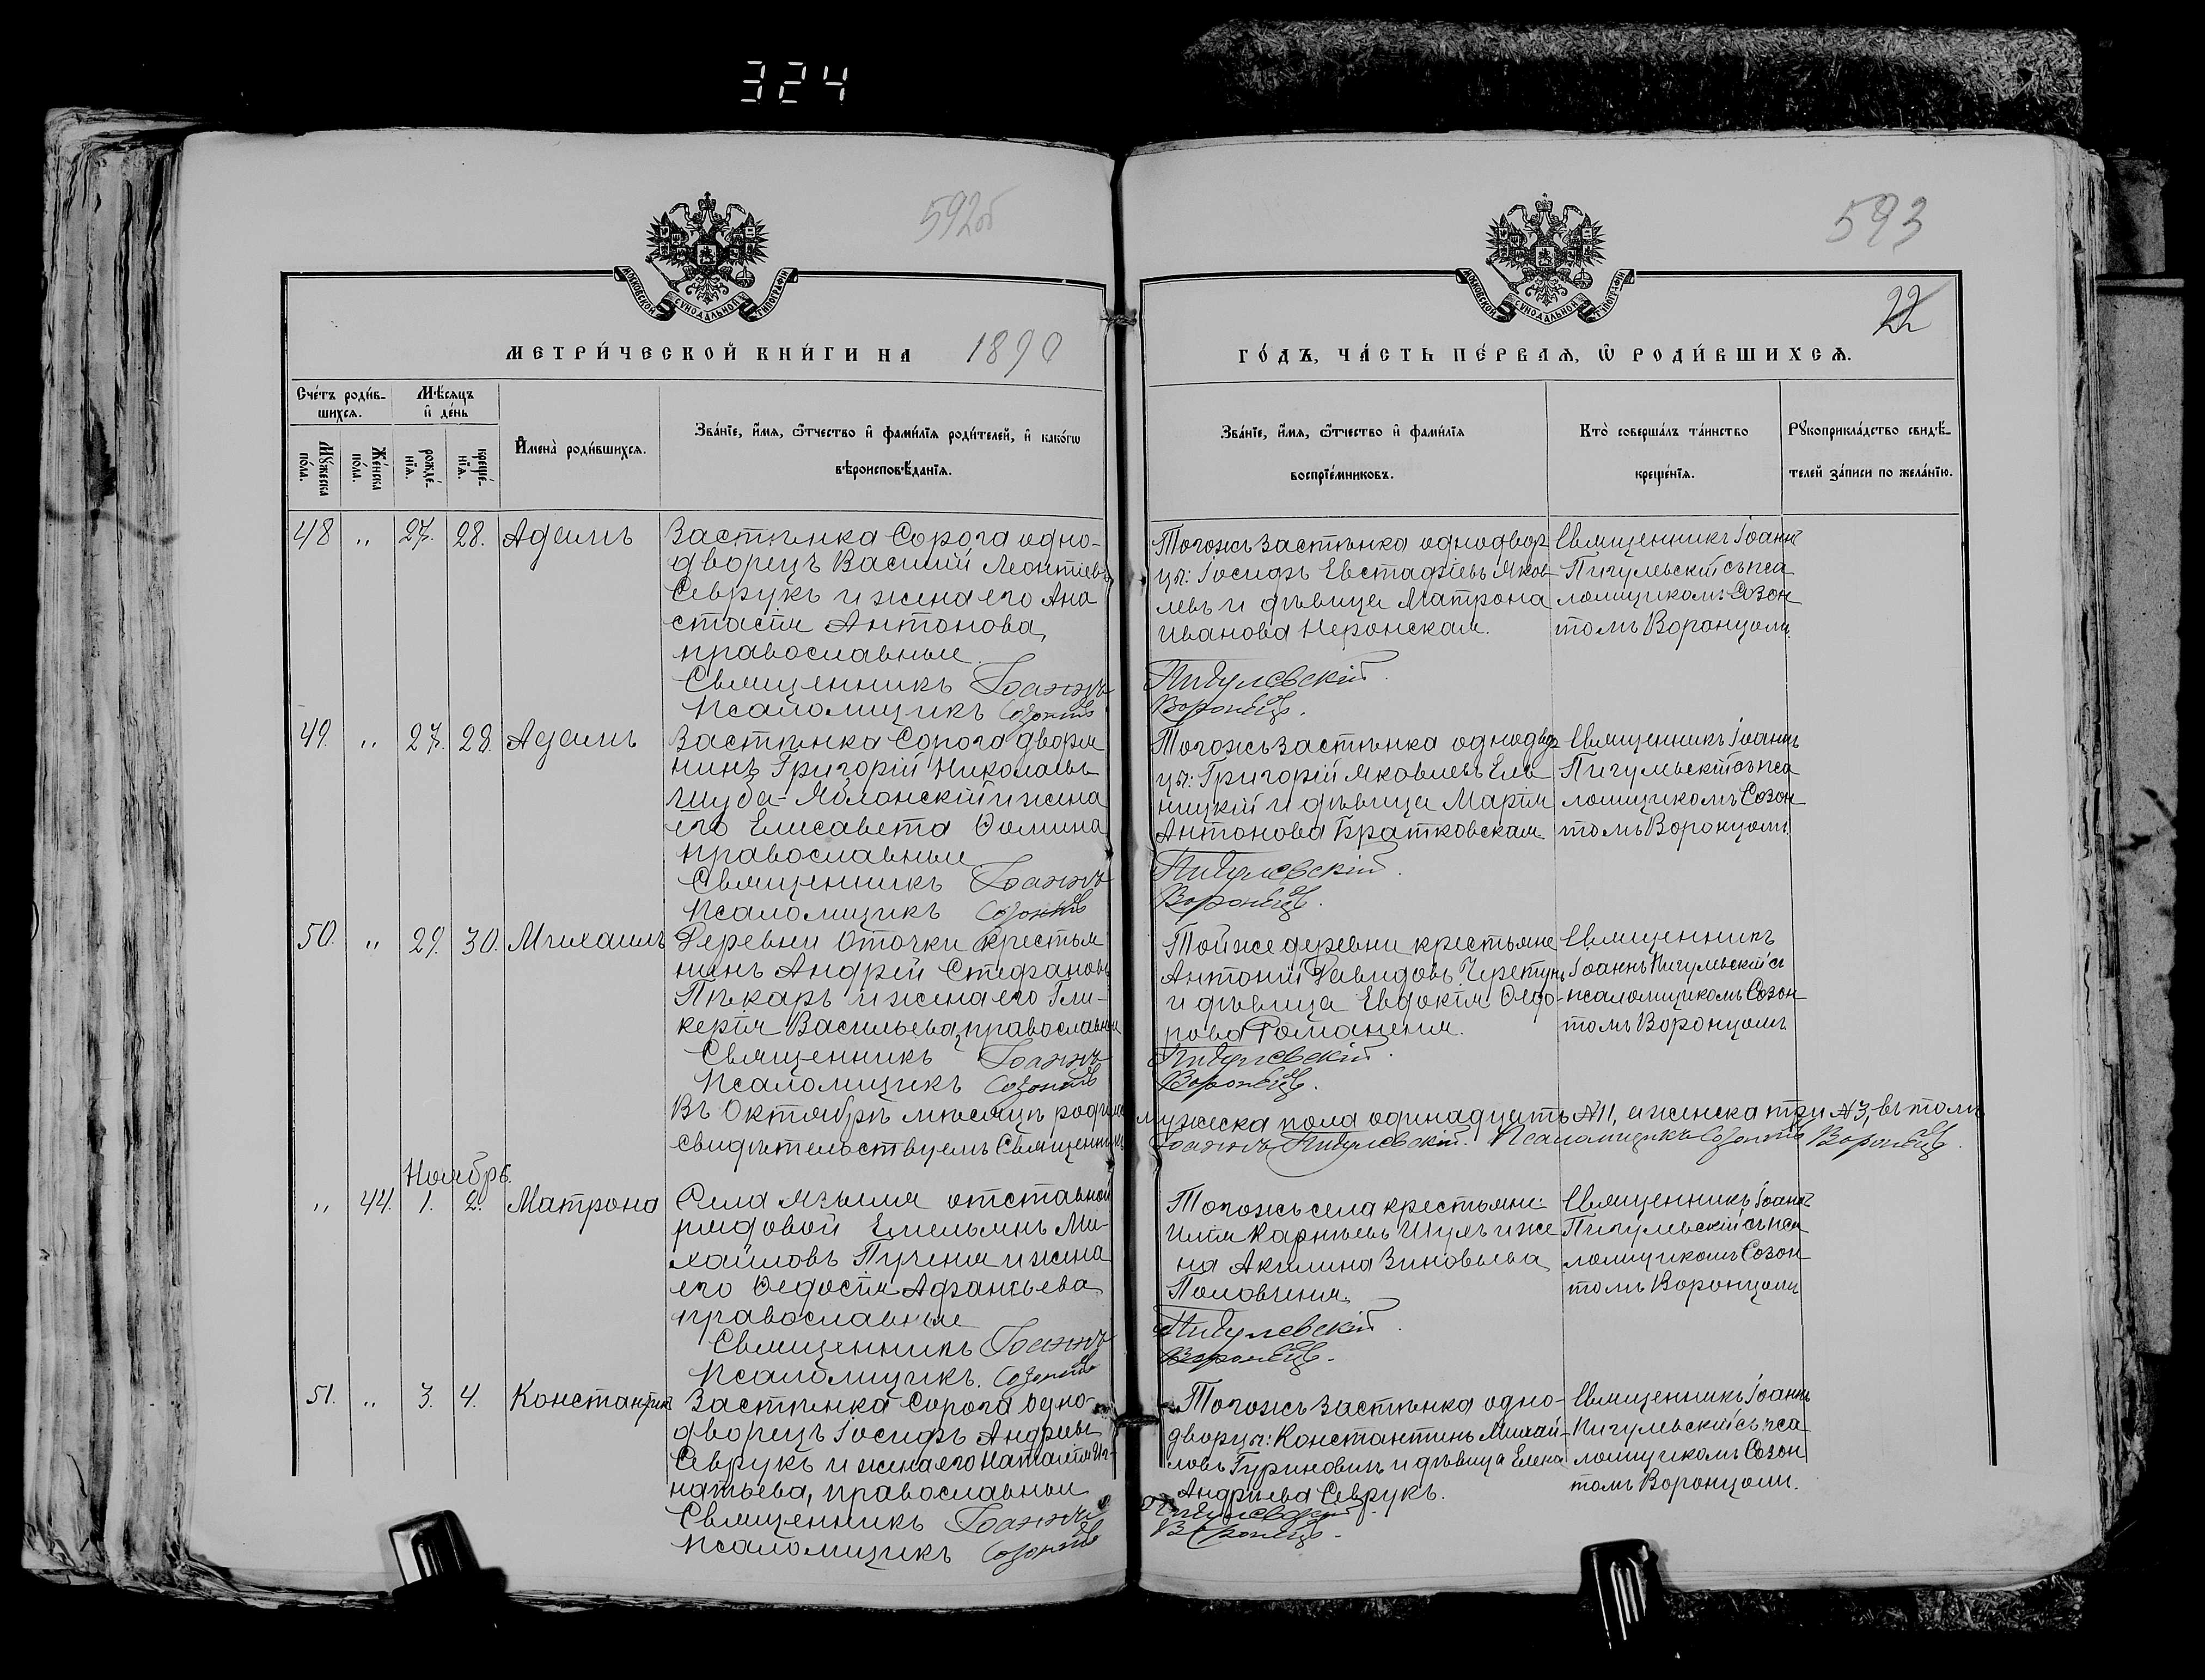 324
592об
593
22
МОСКОВСКОЙ СѴНОДАЛЬНОЙ ТИПОГРАФІИ
МОСКОВСКОЙ СѴНОДАЛЬНОЙ ТИПОГРАФІИ
МЕТРИ́ЧЕСКОЙ КНИ́ГИ НА 1890
ГО́ДЪ, ЧА́СТЬ ПЕ́РВАѦ, Ѡ РОДИ́ВШИХСѦ.
Сче́тъ роди́в-
шихсѧ.
Мꙋжеска по́ла.
Же́нска по́ла.
Мѣ́сѧцъ
и҆ де́нь
рожде́-
нїѧ.
креще́-
нїѧ.
И҆мена̀ роди́вшихсѧ.
Зва́нїе, и҆́мѧ, ѻ҆́тчество и҆ фами́лїѧ роди́телей, и҆ како́гѡ
вѣроисповѣ́данїѧ.
Зва́нїе, и҆́мѧ, ѻ҆́тчество и҆ фами́лїѧ
воспрїе́мниковъ.
Кто̀ соверша́лъ та́инство
креще́нїѧ.
Рꙋкоприкла́дство свидѣ́-
телей за́писи по жела́нїю.
48 „ 27. 28. Адамъ
Застѣнка Сорога одно-
дворецъ Василій Леонтіевъ
Севрукъ и жена его Ана
стасія Антонова,
православные.
Священникъ Іоаннъ
Псаломщикъ Созонтъ
Тогожъ застѣнка однодвор
цы: Іосифъ Евстафіевъ Яков
левъ и дѣвица Матрона
Иванова Неронская.
Пигулевскій.
Воронецъ.
Священникъ Іоаннъ
Пигулевскій съ пса
ломщикомъ Созон
томъ Воронцомъ
49. „ 27. 28. Адамъ
Застѣнка Сорога дворя
нинъ Григорій Николаевъ
Яблонскій и жена
его Елисавета Ѳомина
православные
Священникъ Іоаннъ
Псаломщикъ Созонтъ
Тогожъ застѣнка однодвор
цы: Григорій Яковлевъ Ель
ницкій и дѣвица Марія
Антонова Братковская
Пигулевскій.
Воронецъ.
Священникъ Іоаннъ
Пигулевскій съ пса
ломщикомъ Созон
томъ Воронцомъ
50. „ 29. 30. Михаилъ
Деревни Оточки крестья
нинъ Андрей Стефановъ
Пѣкаръ и жена его Гли-
керія Васильева, православные
Священникъ Іоаннъ
Псаломщикъ Созонтъ
Той же деревни крестьяне
Антоній Давидовъ
и дѣвица Евдокія Ѳедо-
рова Романеня.
Пигулевскій.
Воронецъ.
Священникъ
Іоаннъ Пигулевскій съ
псаломщикомъ Созон
томъ Воронцомъ
Въ Октябрѣ мѣсяцѣ
мужеска пола одинадцать №11, а женска три №3, въ томъ
свидѣтельствуемъ Священникъ
Іоаннъ Пигулевскій. Псаломщикъ Созонтъ Воронецъ.
Ноябрь.
„ 44. 1. 2. Матрона
Села Языля отставной
рядовой Емельянъ Ми-
хайловъ Пученя и жена
его Ѳедосія Афанасьева
православные
Священникъ Іоаннъ
Псаломщикъ. Созонтъ
Тогожъ села крестьяне:
Илія Карнѣевъ Шулъ и же
на Акилина Зиновьева
Половченя.
Пигулевскій.
Воронецъ.
Священникъ Іоаннъ
Пигулевскій съ пса
ломщикомъ Созон
томъ Воронцомъ
51. „ 3. 4. Константинъ
Застѣнка Сорога одно-
дворецъ Іосифъ Андреевъ
Севрукъ и жена его Наталія Иг-
натьева, православные
Священникъ Іоаннъ
Псаломщикъ Созонтъ
Тогожъ застѣнка одно-
дворцы: Константинъ Михай-
ловъ Гуриновичъ и дѣвица Елена
Андреева Севрукъ.
Пигулевскій.
Воронецъ.
Священникъ Іоаннъ
Пигулевскій съ пса
ломщикомъ Созон
томъ Воронцомъ.